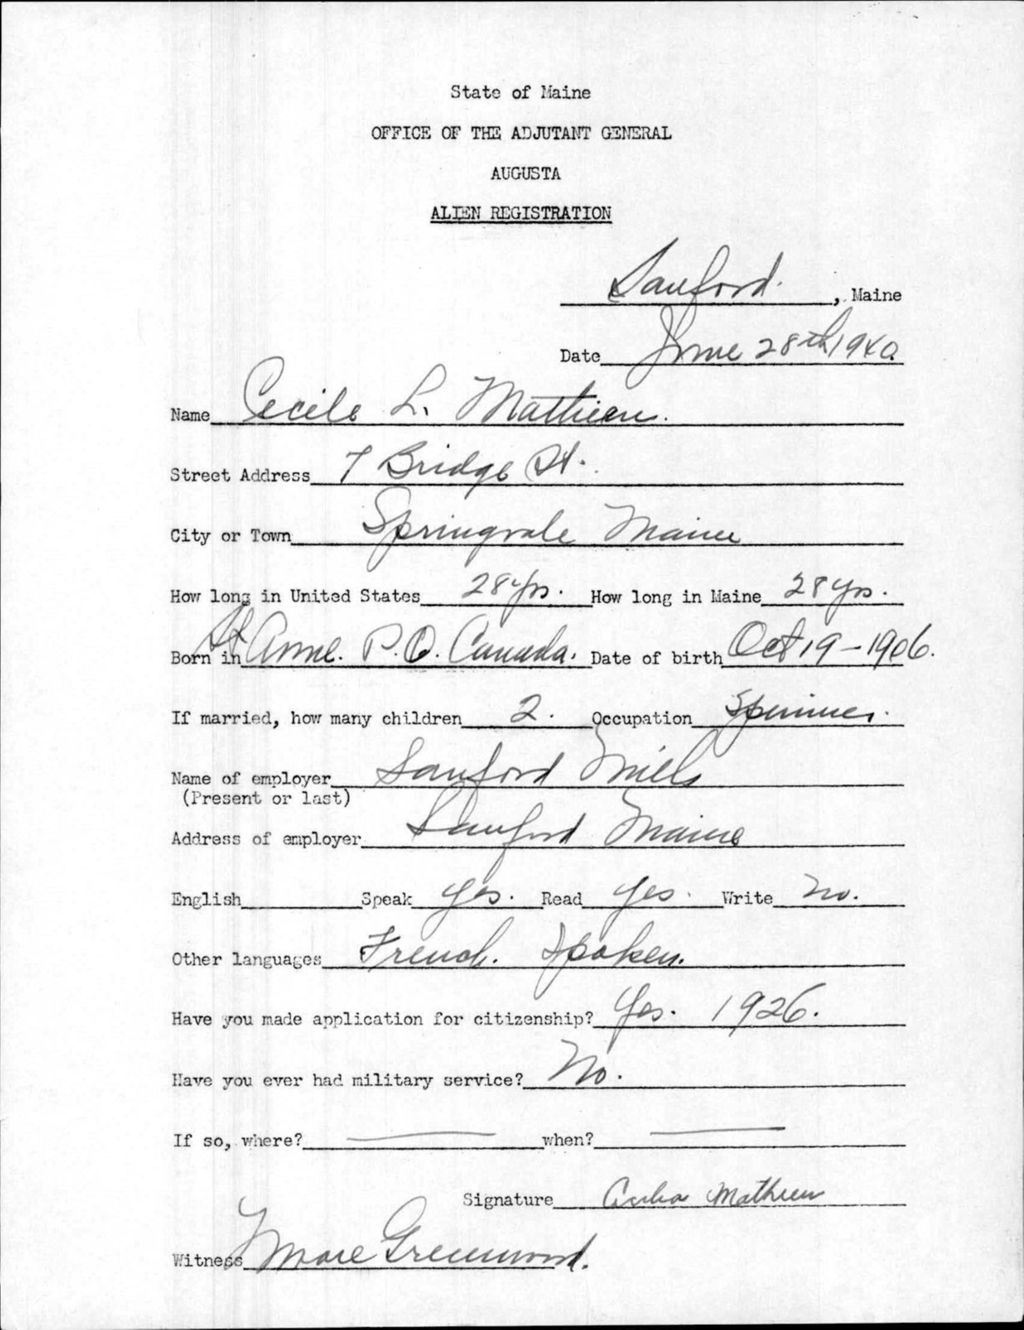 State of Maine
OFFICE OF THE ADJUTANT GENERAL
AUGUSTA
ALIEN REGISTRATION
Sanford, Maine
Date June 28th 1940
Name Cecile L. Mathieu.
Street Address 7 Bridge St.
City or Town Springvale Maine
How long in United States 28 yrs. How long in Maine 28 yrs.
Born in St Anne. P.Q. Canada. Date of birth Oct 19-1906.
If married, how many children 2. Occupation Spinner.
Name of employer Sanford Mills
(Present or last)
Address of employer Sanford Maine
English Speak yes. Read yes. Write no.
Other languages French. Spoken.
Have you made application for citizenship? Yes. 1926.
Have you ever had military service? No.
If so, where? when?
Signature Mathieu
Witness Greenwood.